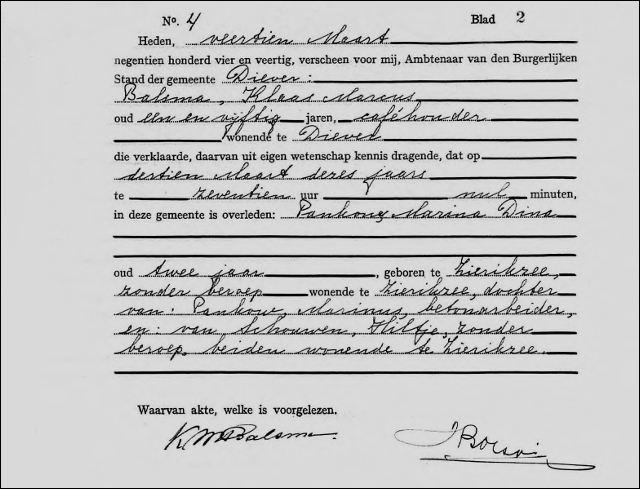 No. 4 Blad 2
Heden, veertien Maart
negentien honderd vier en veertig, verscheen voor mij, Ambtenaar van den Burgerlijken
Stand der gemeente Diever:
Balsma, Klaas Marcus,
oud een en vijftig jaren, caféhouder
wonende te Diever
die verklaarde, daarvan uit eigen wetenschap kennis dragende, dat op
dertien Maart dezes jaars
te zeventien uur nul minuten,
in deze gemeente is overleden: Pankow, Marina Dina
oud twee jaar, geboren te Zierikzee,
zonder beroep wonende te Zierikzee, dochter
van: Pankow, Marinus, betonarbeider,
en: van Schouwen, Hiltje, zonder
beroep, beiden wonende te Zierikzee.
Waarvan akte, welke is voorgelezen.
K M Balsma.